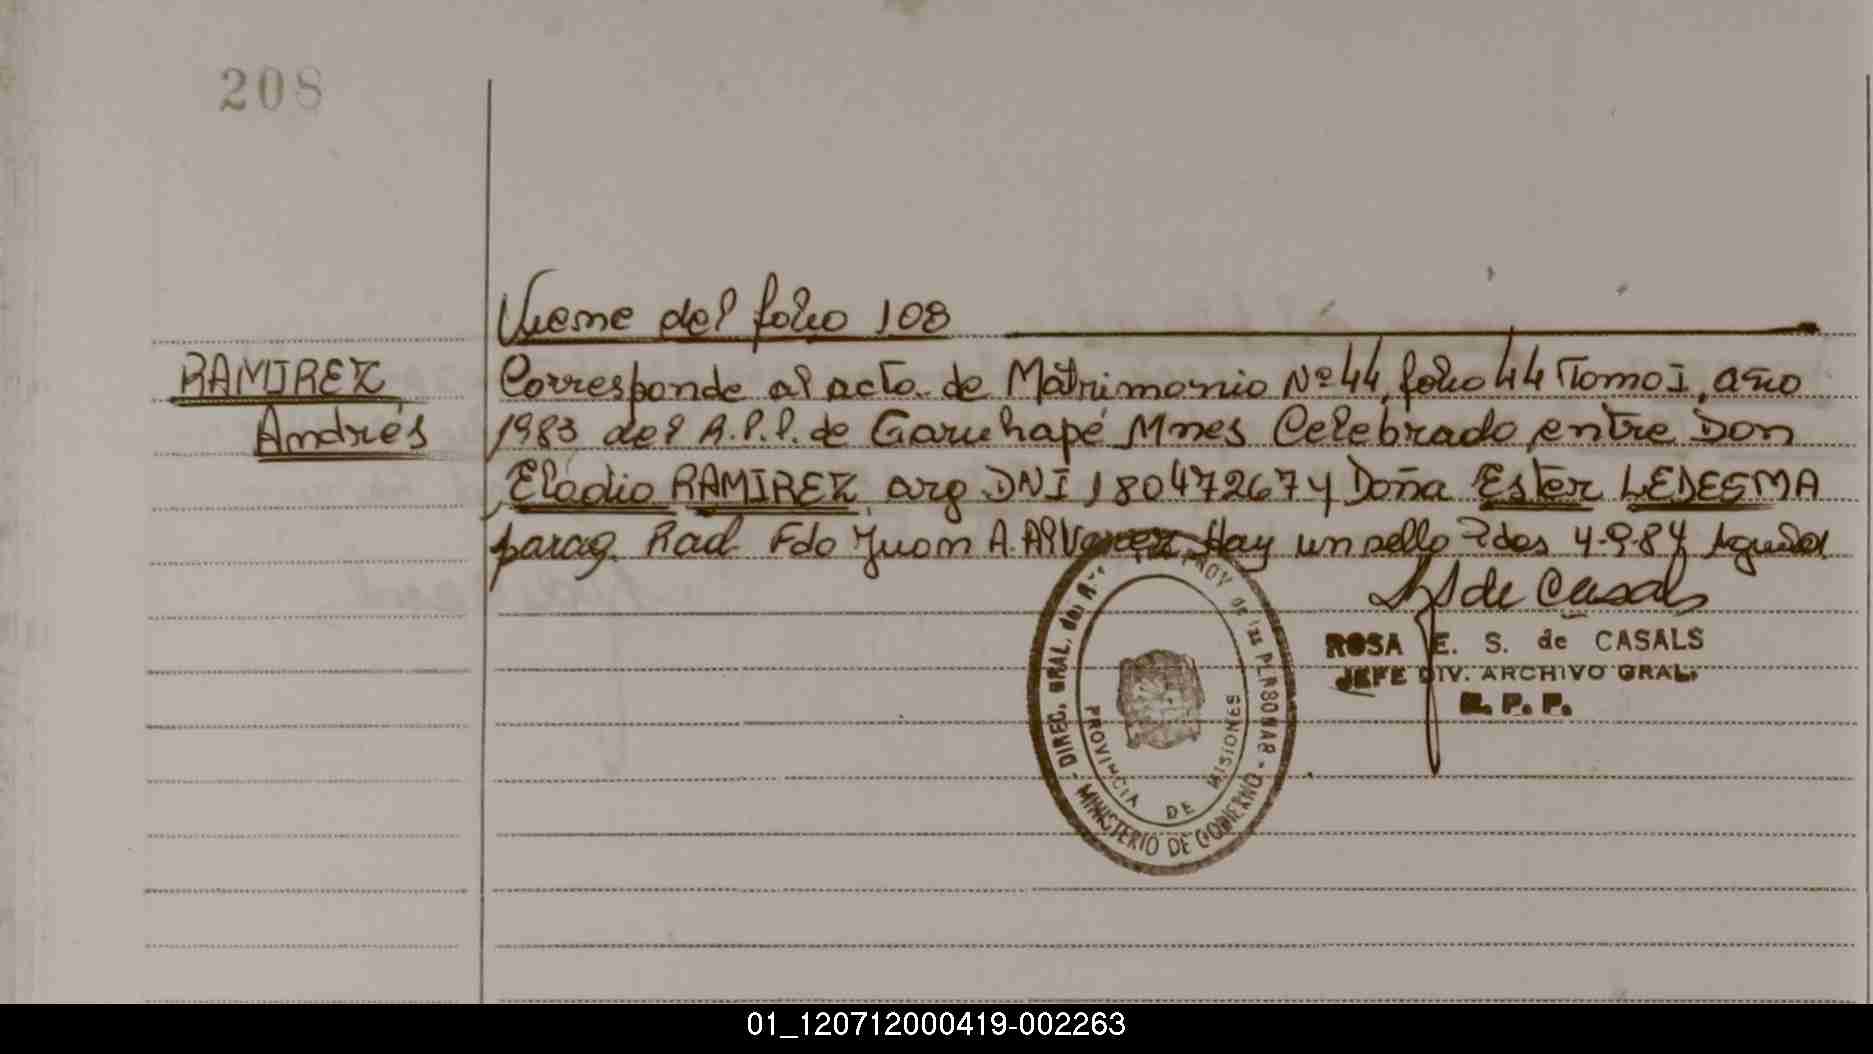 208
Viene del folio 108
RAMIREZ
Corresponde al acta de Matrimonio Nº 44, folio 44 Tomo I, año
Andrés
1983 del R.P.P. de Garuhapé Mnes Celebrado entre Don
Eladio RAMIREZ arg DNI 18047267 y Doña Ester LEDESMA
parag. Rad Fdo Juan A. Alvarez Hay un sello Pdas 4-9-84
S de Casals
ROSA E. S. de CASALS
JEFE DIV. ARCHIVO GRAL.
R. P. P.
DIREC. GRAL. del PROV de las PERSONAS - MINISTERIO DE GOBIERNO -
PROVINCIA DE MISIONES
01_120712000419-002263